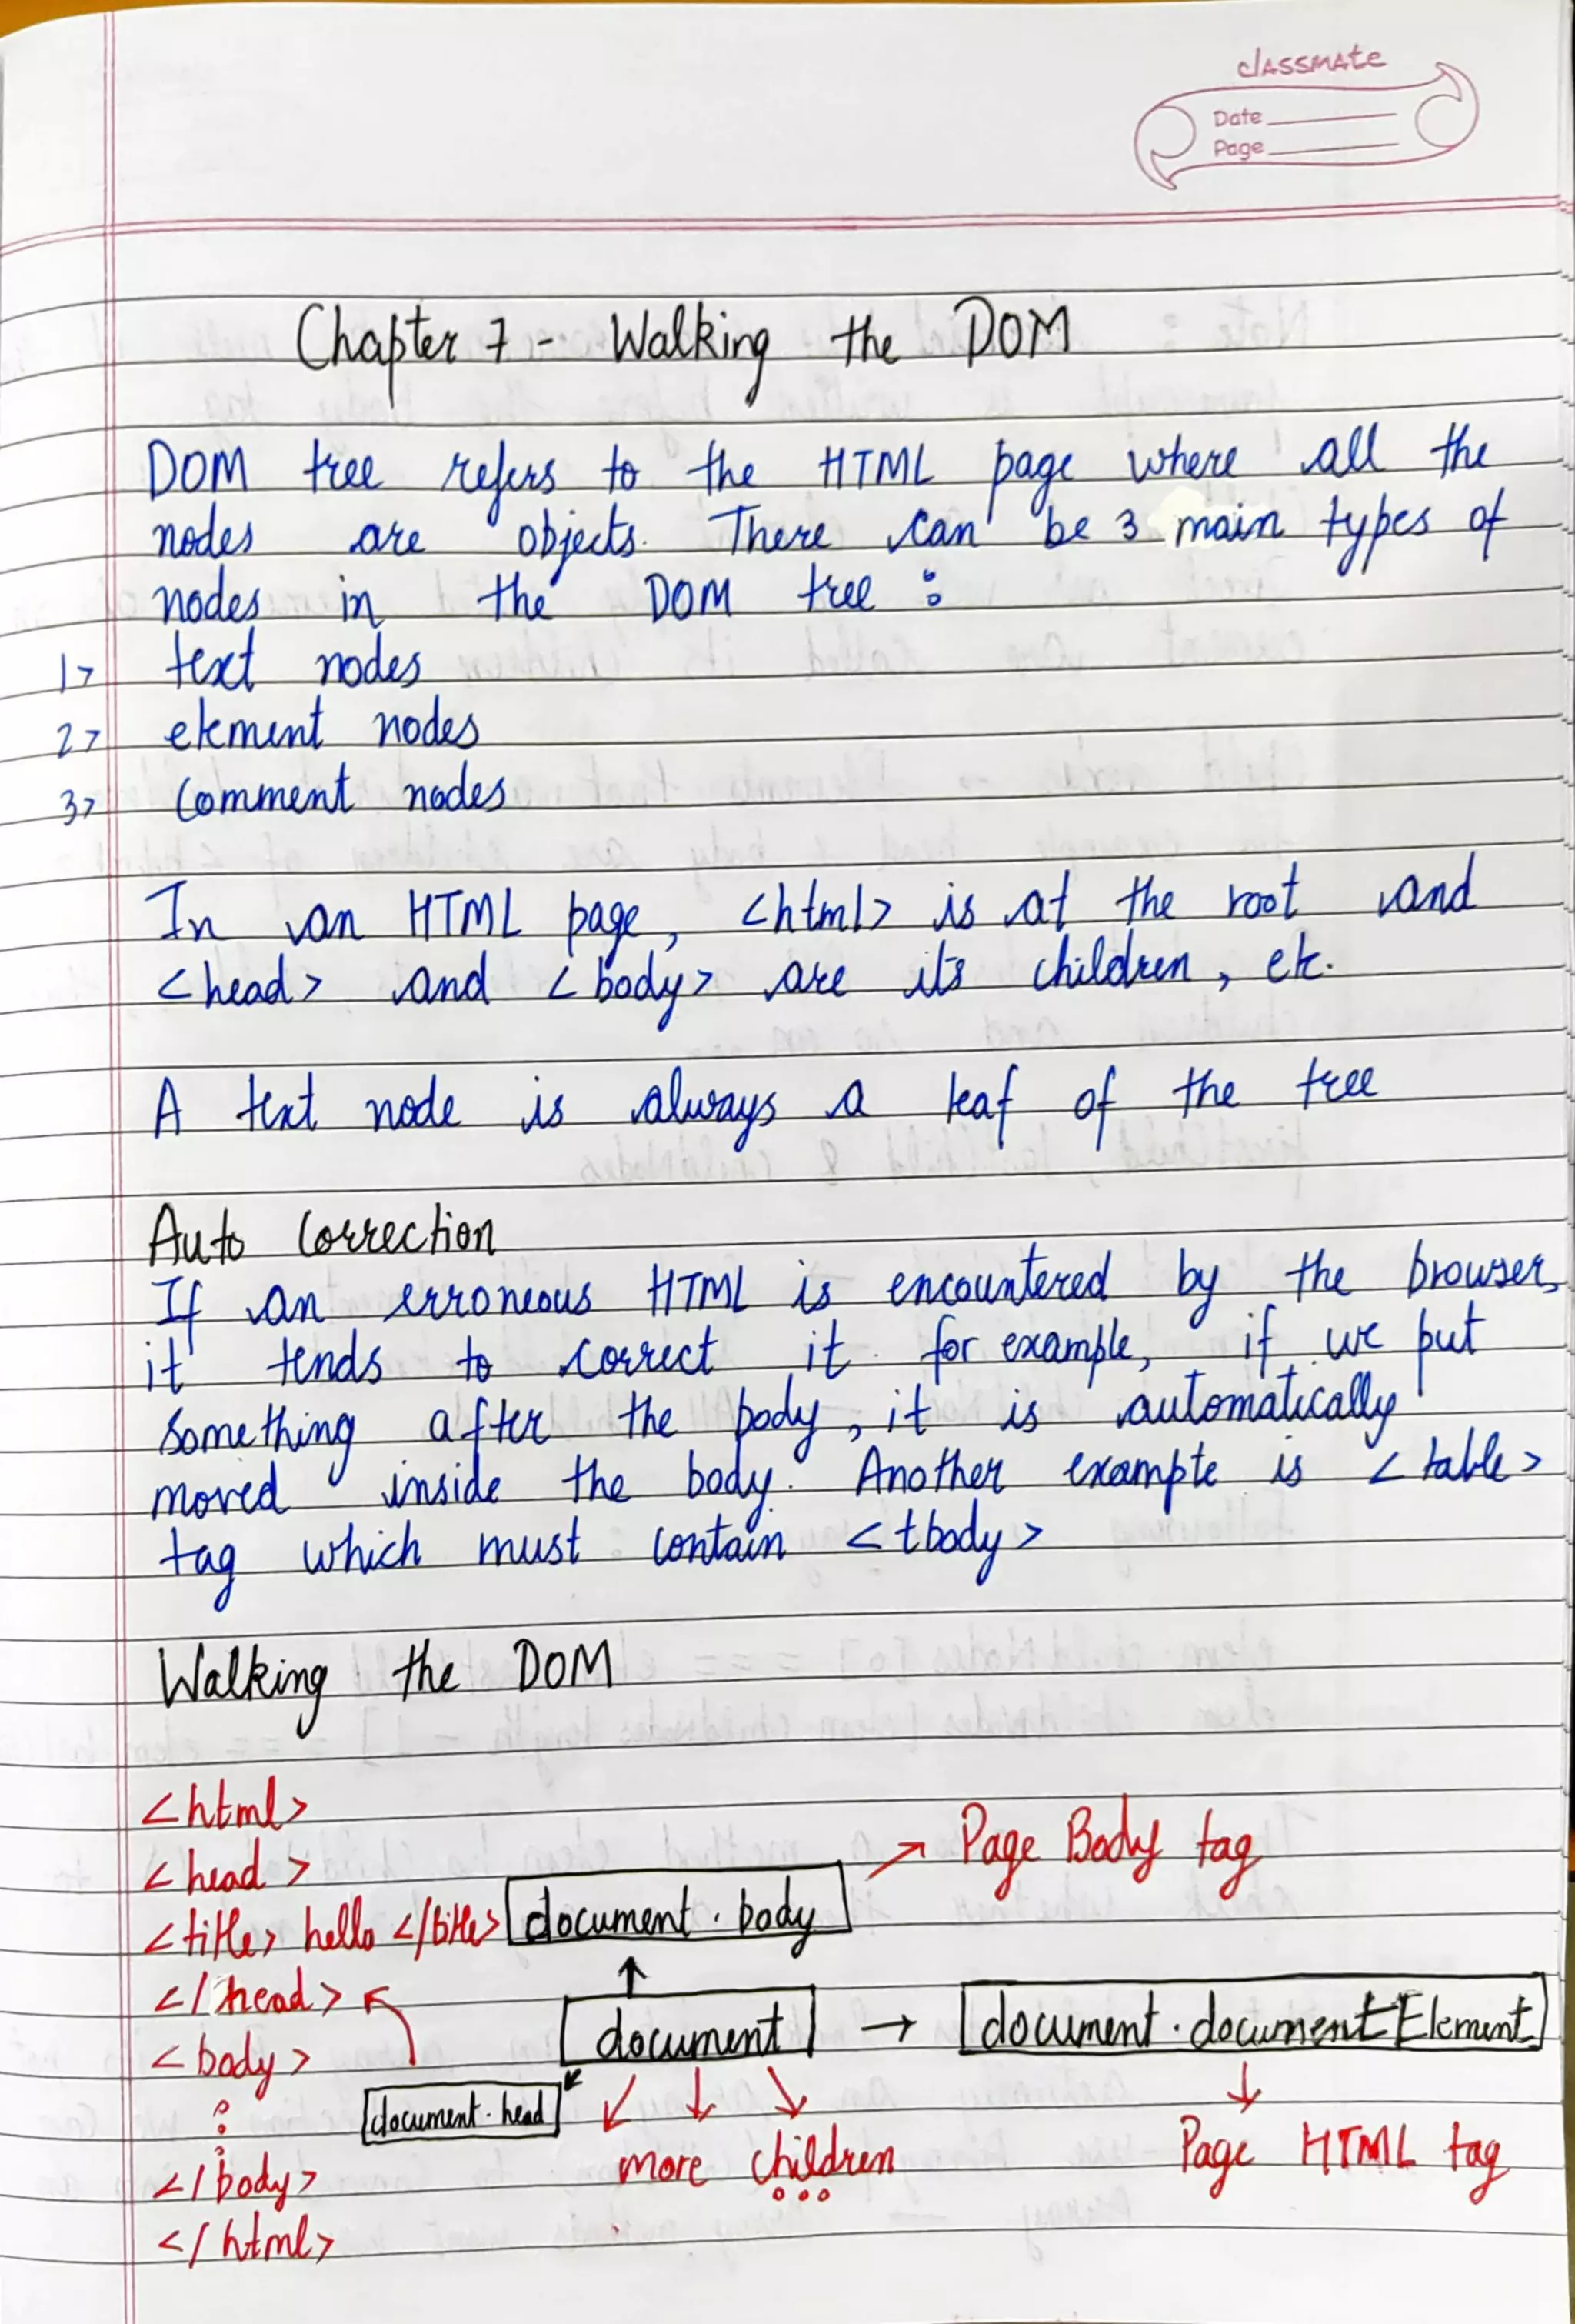 classmate
Date
Page
Chapter 7 - Walking the DOM
DOM tree refers to the HTML page where all the
nodes are objects. There can be 3 main types of
nodes in the DOM tree :
1> text nodes
2> element nodes
3> Comment nodes
In an HTML page, <html> is at the root and
<head> and <body> are its children, etc.
A text node is always a leaf of the tree
Auto Correction
If an erroneous HTML is encountered by the browser,
it tends to correct it. for example, if we put
something after the body, it is automatically
moved inside the body. Another example is <table>
tag which must contain <tbody>
Walking the DOM
<html>
<head>
<title> hello </title>
</head>
<body>
:
</body>
</html>
document.body
Page Body tag
document
document.documentElement
document.head
more children
...
Page HTML tag